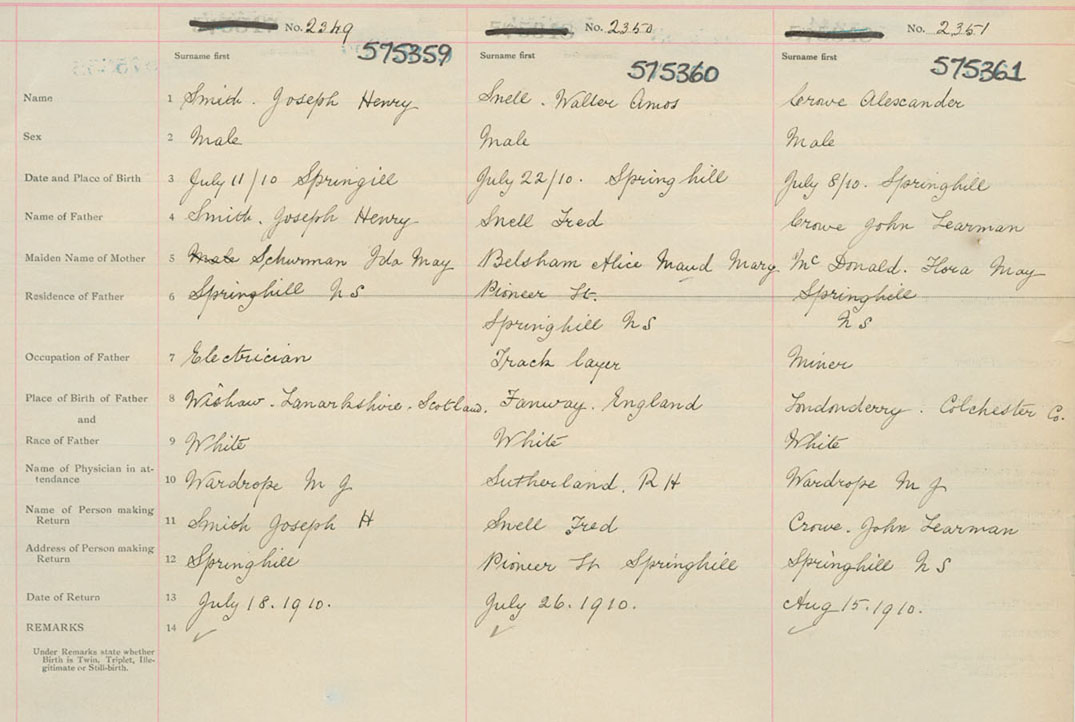 No. 2349 No. 2350 No. 2351
575359 575360 575361
Surname first Surname first Surname first
Name 1 Smith. Joseph Henry Snell. Walter Amos Crowe Alexcander
Sex 2 Male Male Male
Date and Place of Birth 3 July 11/10 Springill July 22/10. Springhill July 8/10. Springhill
Name of Father 4 Smith. Joseph Henry Snell Fred Crowe John Learman
Maiden Name of Mother 5 Schurman Ida May Belsham Alice Maud Mary. Mc Donald. Flora May
Residence of Father 6 Springhill NS Pioneer St. Springhill
Springhill NS NS
Occupation of Father 7 Electrician Track layer Miner
Place of Birth of Father 8 Wishaw. Lanarkshire. Scotland. Fanway. England Londonderry. Colchester Co.
and
Race of Father 9 White White White
Name of Physician in at-
tendance 10 Wardrope M J Sutherland. R H Wardrope M J
Name of Person making
Return 11 Smith Joseph H Snell Fred Crowe. John Learman
Address of Person making
Return 12 Springhill Pioneer St Springhill Springhill NS
Date of Return 13 July 18.1910. July 26.1910. Aug 15.1910.
REMARKS 14
Under Remarks state whether
Birth is Twin, Triplet, Ille-
gitimate or Still-birth.